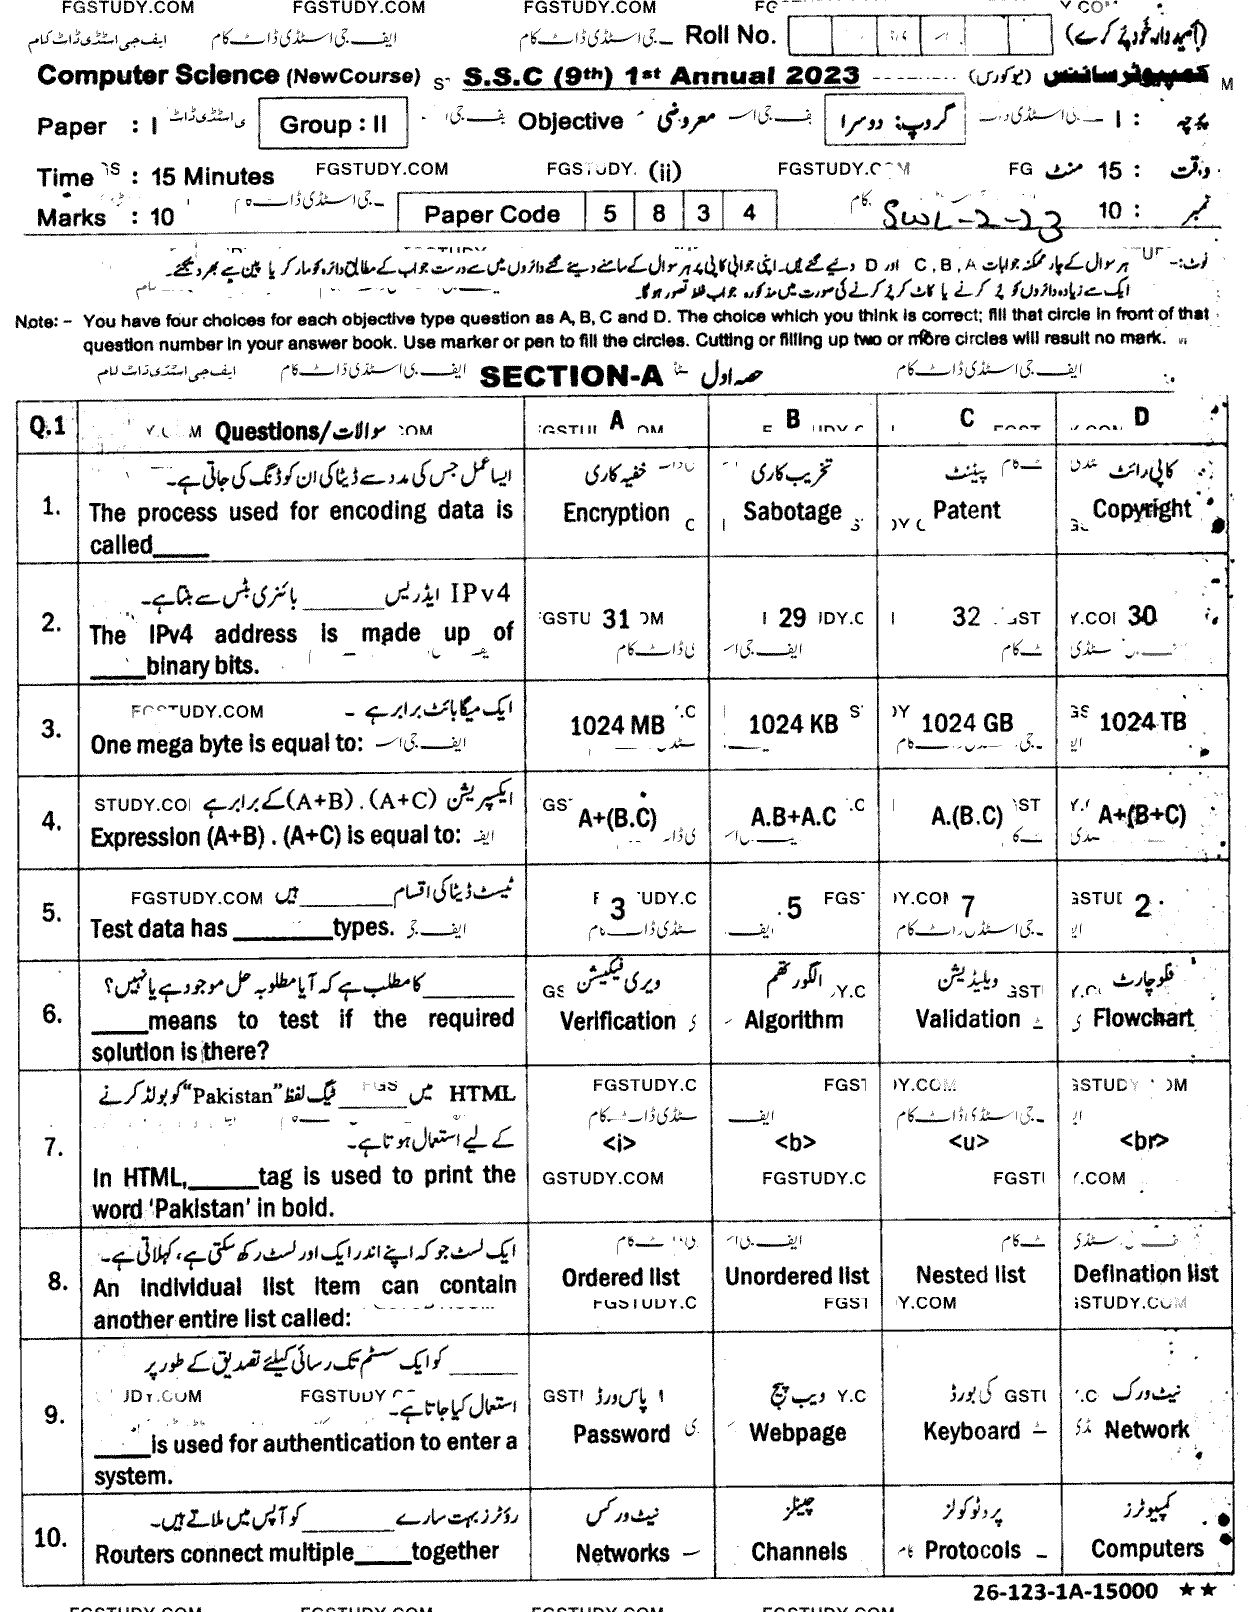 FGSTUDY.COM FGSTUDY.COM FGSTUDY.COM
ایف جی اسٹڈی ڈاٹ کام Roll No. (امیدوار خود پُر کرے)
Computer Science (NewCourse) S.S.C (9th) 1st Annual 2023 کمپیوٹر سائنس (نیوکورس)
Paper : I Group : II Objective معروضی گروپ: دوسرا پرچہ : I
Time : 15 Minutes FGSTUDY.COM (ii) وقت : 15 منٹ
Marks : 10 Paper Code 5 8 3 4 SWL-2-23 نمبر : 10
نوٹ:- ہر سوال کے چار ممکنہ جوابات A, B, C اور D دیے گئے ہیں۔ اپنی جوابی کاپی پر ہر سوال کے سامنے دیئے گئے دائروں میں سے درست جواب کے مطابق دائرہ کو مارکر یا پین سے بھر دیجئے۔
ایک سے زیادہ دائروں کو پُر کرنے یا کاٹ کر پُر کرنے کی صورت میں مذکورہ جواب غلط تصور ہوگا۔
Note: - You have four choices for each objective type question as A, B, C and D. The choice which you think is correct; fill that circle in front of that
question number in your answer book. Use marker or pen to fill the circles. Cutting or filling up two or more circles will result no mark.
SECTION-A حصہ اول
Q.1 Questions/سوالات A B C D
ایسا عمل جس کی مدد سے ڈیٹا کی ان کوڈنگ کی جاتی ہے۔ خفیہ کاری تخریب کاری پیٹنٹ کاپی رائٹ
1. The process used for encoding data is Encryption Sabotage Patent Copyright
called_____
IPv4 ایڈریس ______ بائنری بٹس سے بنتا ہے۔
2. The IPv4 address is made up of 31 29 32 30
_____binary bits.
ایک میگا بائٹ برابر ہے ۔
3. One mega byte is equal to: 1024 MB 1024 KB 1024 GB 1024 TB
ایکسپریشن (A+B) . (A+C) کے برابر ہے
4. Expression (A+B) . (A+C) is equal to: A+(B.C) A.B+A.C A.(B.C) A+(B+C)
ٹیسٹ ڈیٹا کی اقسام ______ ہیں
5. Test data has ________types. 3 5 7 2
______ کا مطلب ہے کہ آیا مطلوبہ حل موجود ہے یا نہیں؟ ویری فیکیشن الگورتھم ویلیڈیشن فلوچارٹ
6. _____means to test if the required Verification Algorithm Validation Flowchart
solution is there?
HTML میں _____ ٹیگ لفظ "Pakistan" کو بولڈ کرنے
کے لیے استعمال ہوتا ہے۔
7. In HTML,_____tag is used to print the <i> <b> <u> <br>
word 'Pakistan' in bold.
ایک لسٹ جو کہ اپنے اندر ایک اور لسٹ رکھ سکتی ہے، کہلاتی ہے۔
8. An individual list item can contain Ordered list Unordered list Nested list Defination list
another entire list called:
______ کو ایک سسٹم تک رسائی کیلئے تصدیق کے طور پر
استعمال کیا جاتا ہے۔ پاس ورڈ ویب پیج کی بورڈ نیٹ ورک
9. _____is used for authentication to enter a Password Webpage Keyboard Network
system.
روٹرز بہت سارے ______ کو آپس میں ملاتے ہیں۔ نیٹ ورکس چینلز پروٹوکولز کمپیوٹرز
10. Routers connect multiple_____together Networks Channels Protocols Computers
26-123-1A-15000 ★★
FGSTUDY.COM FGSTUDY.COM FGSTUDY.COM FGSTUDY.COM